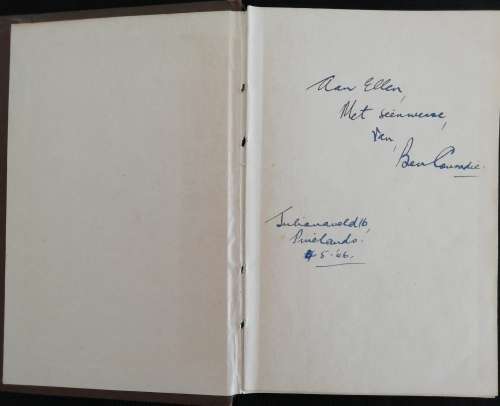 Aan Ellen,
Met seënwense,
van,
Ben Conradie.
Julianaveld 16,
Pinelands.
5.66.